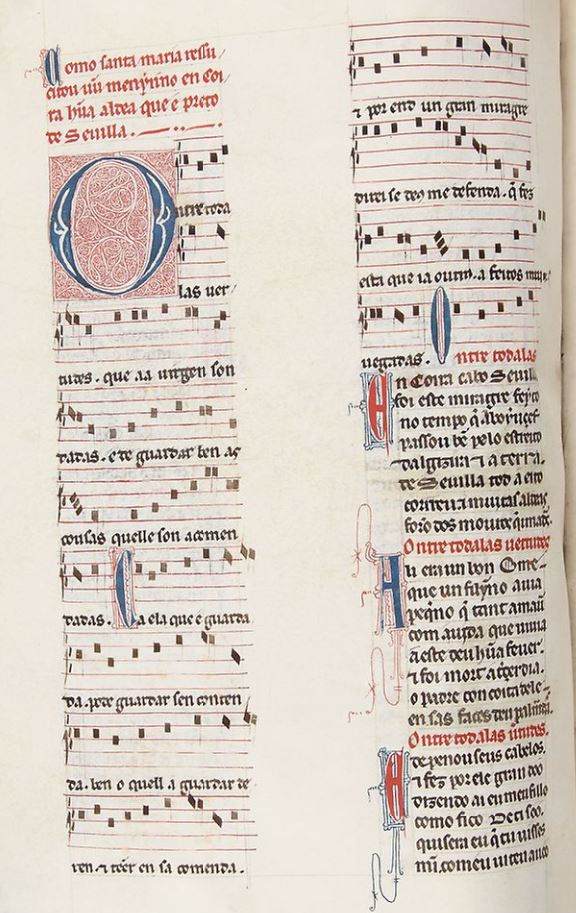 Como santa maria ressu
citou un meny̅ino en Coi
ra hu̅a aldea que e preto
de Seuilla.
Ontre toda
las uer
tudes. que aa uirgen son
dadas. e de guardar ben as
cousas quelle son acomen
dadas. Ca ela que é guarda
da. pode guardar sen conten
da. ben o quell a guardar de
ren. ⁊ teer en sa comenda.
⁊ por end un gran miragre
direi se deus me defenda. q̅ fez
esta que ia outro.a feitos
uegadas. Ontre todalas
En Coira cabo Seuilla
foi este miragre feyto
no tempo q̅ Aboyuçef
passou be̅ pelo estreito
dalgizira ⁊ a terra.
de Seuilla tod a eito
correu ⁊ muitas aldeas
foro̅ dos mouros
Ontre todalas uertudes
Ali era un bon Ome
que un fillyno auia
peq̅no q̅ tant amaua
com aquda que uiuia
a este deu hu̅a feuer.
⁊ foi mort a terçer dia.
o padre con coita dele
en sas faces deu palmadas.
Ontre todalas u̅tudes.
E depenou seus cabelos.
⁊ fez por ele gran doo
dizendo ai eu meu fillo
como fico de ti soo.
quisera eu q̅ tu uisses
mi̅.como eu ui teu auoo